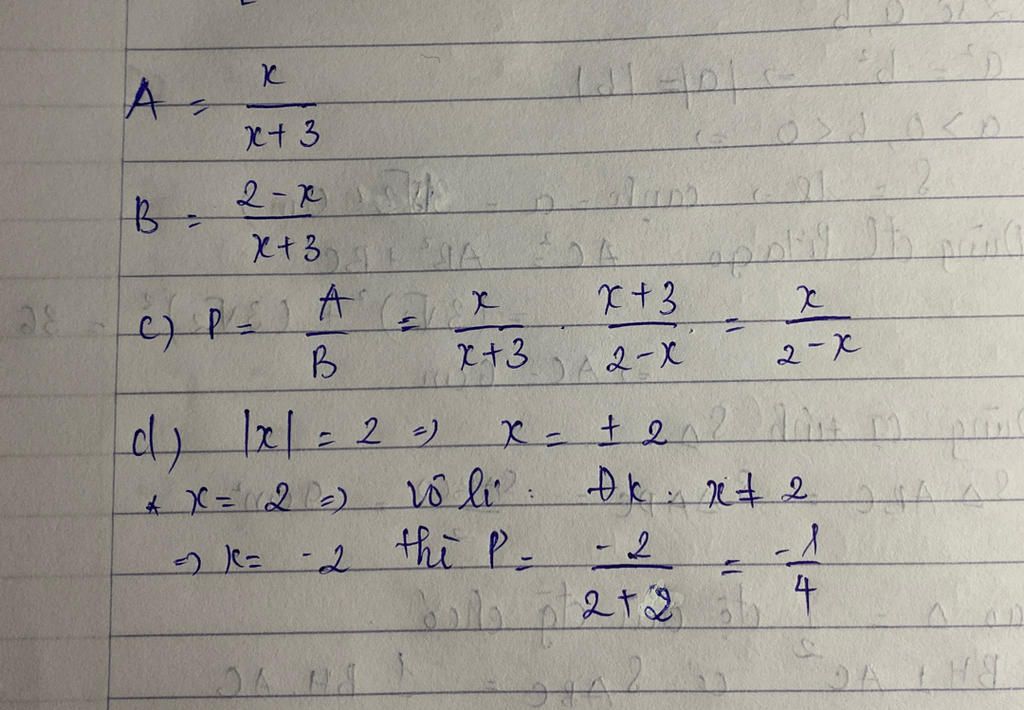 A = x/(x+3)
B = (2-x)/(x+3)
c) P = A/B = x/(x+3) . (x+3)/(2-x) = x/(2-x)
d) |x| = 2 => x = ± 2
* x = 2 => vô lí : Đk : x ≠ 2
=> x = -2 thì P = -2/(2+2) = -1/4